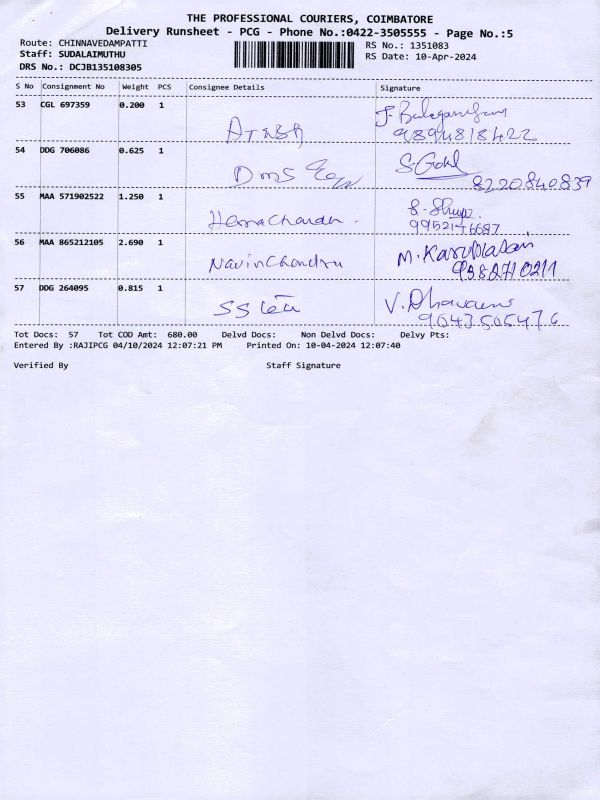 THE PROFESSIONAL COURIERS, COIMBATORE
Delivery Runsheet - PCG - Phone No.:0422-3505555 - Page No.:5
Route: CHINNAVEDAMPATTI
Staff: SUDALAIMUTHU
DRS No.: DCJB135108305
RS No.: 1351083
RS Date: 10-Apr-2024
S No Consignment No Weight PCS Consignee Details Signature
53 CGL 697359 0.200 1
9894818422
54 DDG 706086 0.625 1 S. Gokul
8220840839
55 MAA 571902522 1.250 1 Hemachandar.
56 MAA 865212105 2.690 1 Navin Chandru
9382710211
57 DDG 264095 0.815 1
Tot Docs: 57 Tot COD Amt: 680.00 Delvd Docs: Non Delvd Docs: Delvy Pts:
Entered By :RAJIPCG 04/10/2024 12:07:21 PM Printed On: 10-04-2024 12:07:40
Verified By Staff Signature